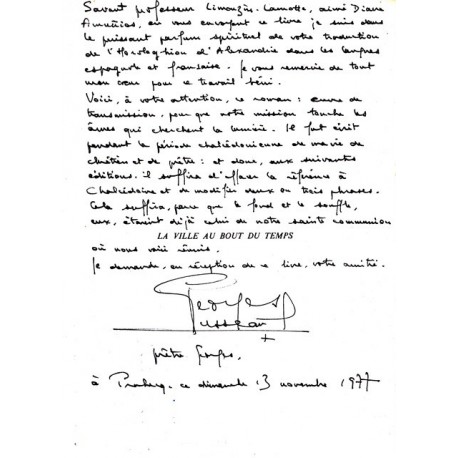 Savant professeur Limouzin-Lamothe, aimé Diacre
en vous envoyant ce livre je suis dans
le puissant parfum spirituel de votre traduction
de l'Horologhion d'Alexandrie dans les langues
espagnole et française. Je vous remercie de tout
mon cœur pour ce travail béni.
Voici, à votre attention, ce roman : œuvre de
transmission, pour que notre mission touche les
âmes qui cherchent la lumière. Il fut écrit
pendant la période chalcédonienne de ma vie de
chrétien et de prêtre : et donc, aux suivantes
éditions, il suffira d'effacer la référence à
Chalcédoine et de modifier deux ou trois phrases.
Cela suffira, parce que le fond et le souffle,
eux, étaient déjà celui de notre sainte communion
LA VILLE AU BOUT DU TEMPS
où nous voici réunis.
Je demande, en réception de ce livre, votre amitié.
Georges
prêtre Georges,
à ce dimanche 13 novembre 1977